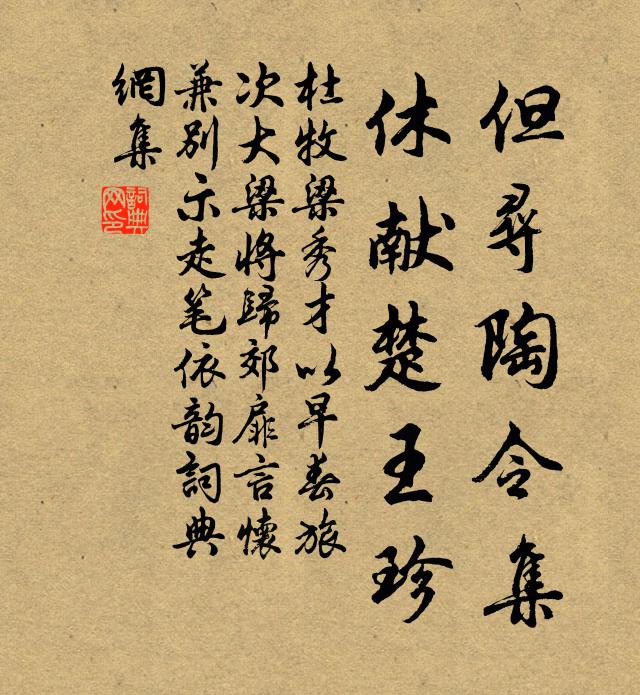 但尋陶令集
休献楚王珍
杜牧梁秀才以早春旅
次大梁將歸郊扉言懷
兼別示走笔依韵詞典
網集
詞典
网印